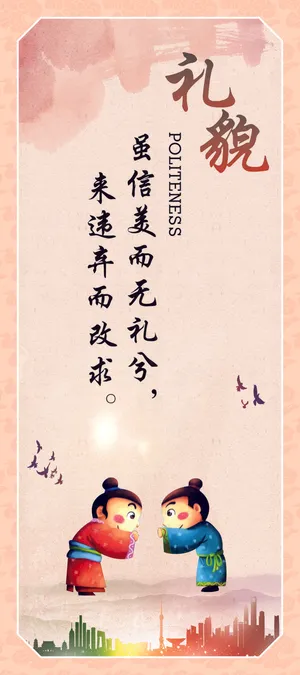 礼貌
POLITENESS
虽信美而无礼兮，
来违弃而改求。